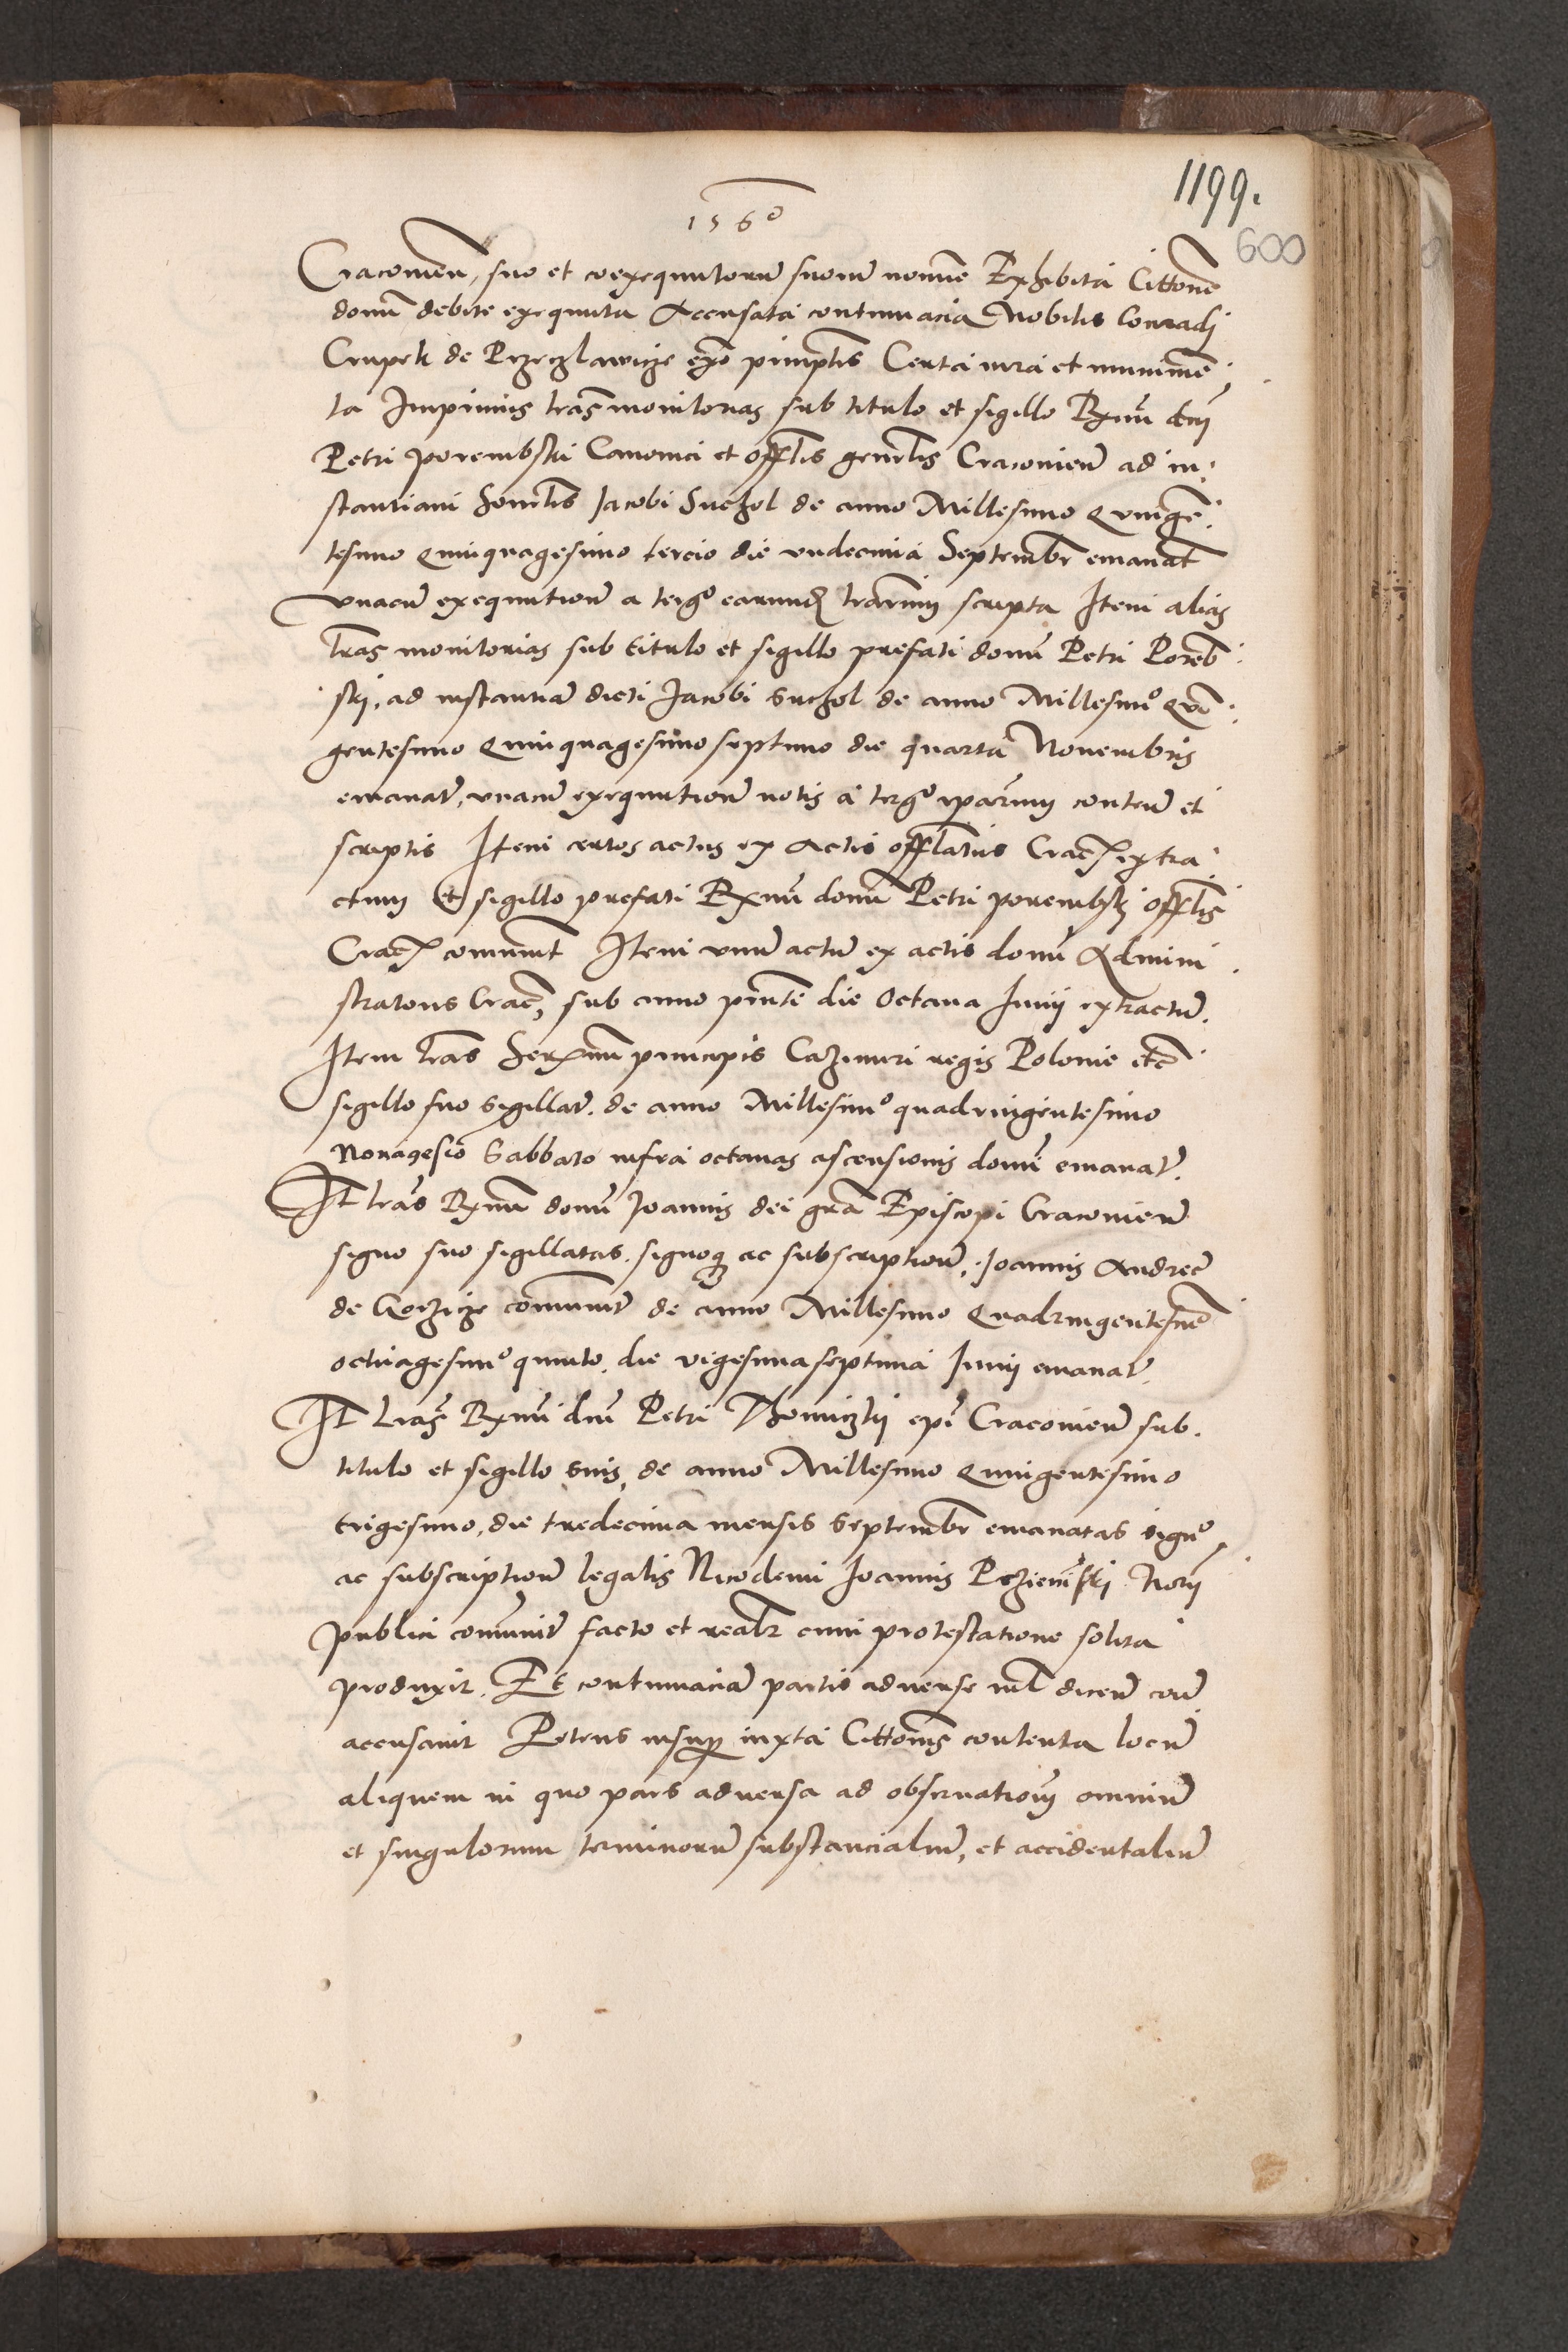 1199.
1560
600
Cracovien̄, suo et coexequutorum suorum nomine Exhibita Citt̄one
domini debite exequuta Accusata contumacia Nobilis Conradi
Crupek de Przeczlawicze exn̄ principtis Certa iura et munimen
ta Inprimis lr̄as monitorias sub titulo et sigillo Rx̄mi dn̄i
Petri porembski Canonici et offl̄is gen̄rlis Cracovien̄ ad in
stantiam honl̄is Jacobi Suchol de anno Millesimo Quingen
tesimo quinquagesimo tercio die vndecima Septembr emanat̄
vnacum exequutione a tergo earund lr̄arum scripta Item alias
lr̄as monitorias sub titulo et sigillo prefati domini Petri Poremb
ski, ad instantiam dicti Jacobi Suchol de anno Millesimo Quin
gentesimo Quinquagesimo septimo die quarta Novembris
emanat̄, vnacum exequutionū notis a tergo ip̄arum conten̄ et
scriptis Item certos actus ex Actis offl̄atus Crac̄ extra
ctum et sigillo prefati Rx̄mi domini Petri porembski offl̄is
Crac̄ comunit̄ Item vnum actum ex actis domini Admini
stratoris Crac̄, sub anno pn̄te die Octava Junij extractum.
Item lr̄as Serx̄mi principis Cazimiri regis Polonie etc̄
sigillo suo sigillat̄. de anno Millesimo quadringentesimo
Nonagesio Sabbato infra octavas ascensionis domini emanat̄.
It̄ lr̄as Rx̄mi domini Joannis dei gr̄a Episcopi Cracovien̄
signo suo sigillatas. signoq ac subscriptione, Joannis Andree
de Gorzicze comunit̄ de anno Millesimo Quadringentesimo
octuagesimo quinto, die vigesima septima Junij emanat̄.
It̄ lr̄as Rx̄mi dn̄i Petri Thomiczkij ep̄i Cracovien̄ sub
titulo et sigillo suis, de anno Millesimo Quingentesimo
trigesimo, die tredecima mensis Septembr emanatas signo
ac subscriptione legalis Nicodemi Joannis Notrij
publici comunit̄ facto et realr̄ cum protestatione solita
produxit. Et contumaciam partis adverse nil dicen̄ cor̄
accusavit Petens insup iuxta Citt̄onis contenta locum
aliquem in quo pars adversa ad observationem omnium
et singulorum terminorum substancialium, et accidentalium